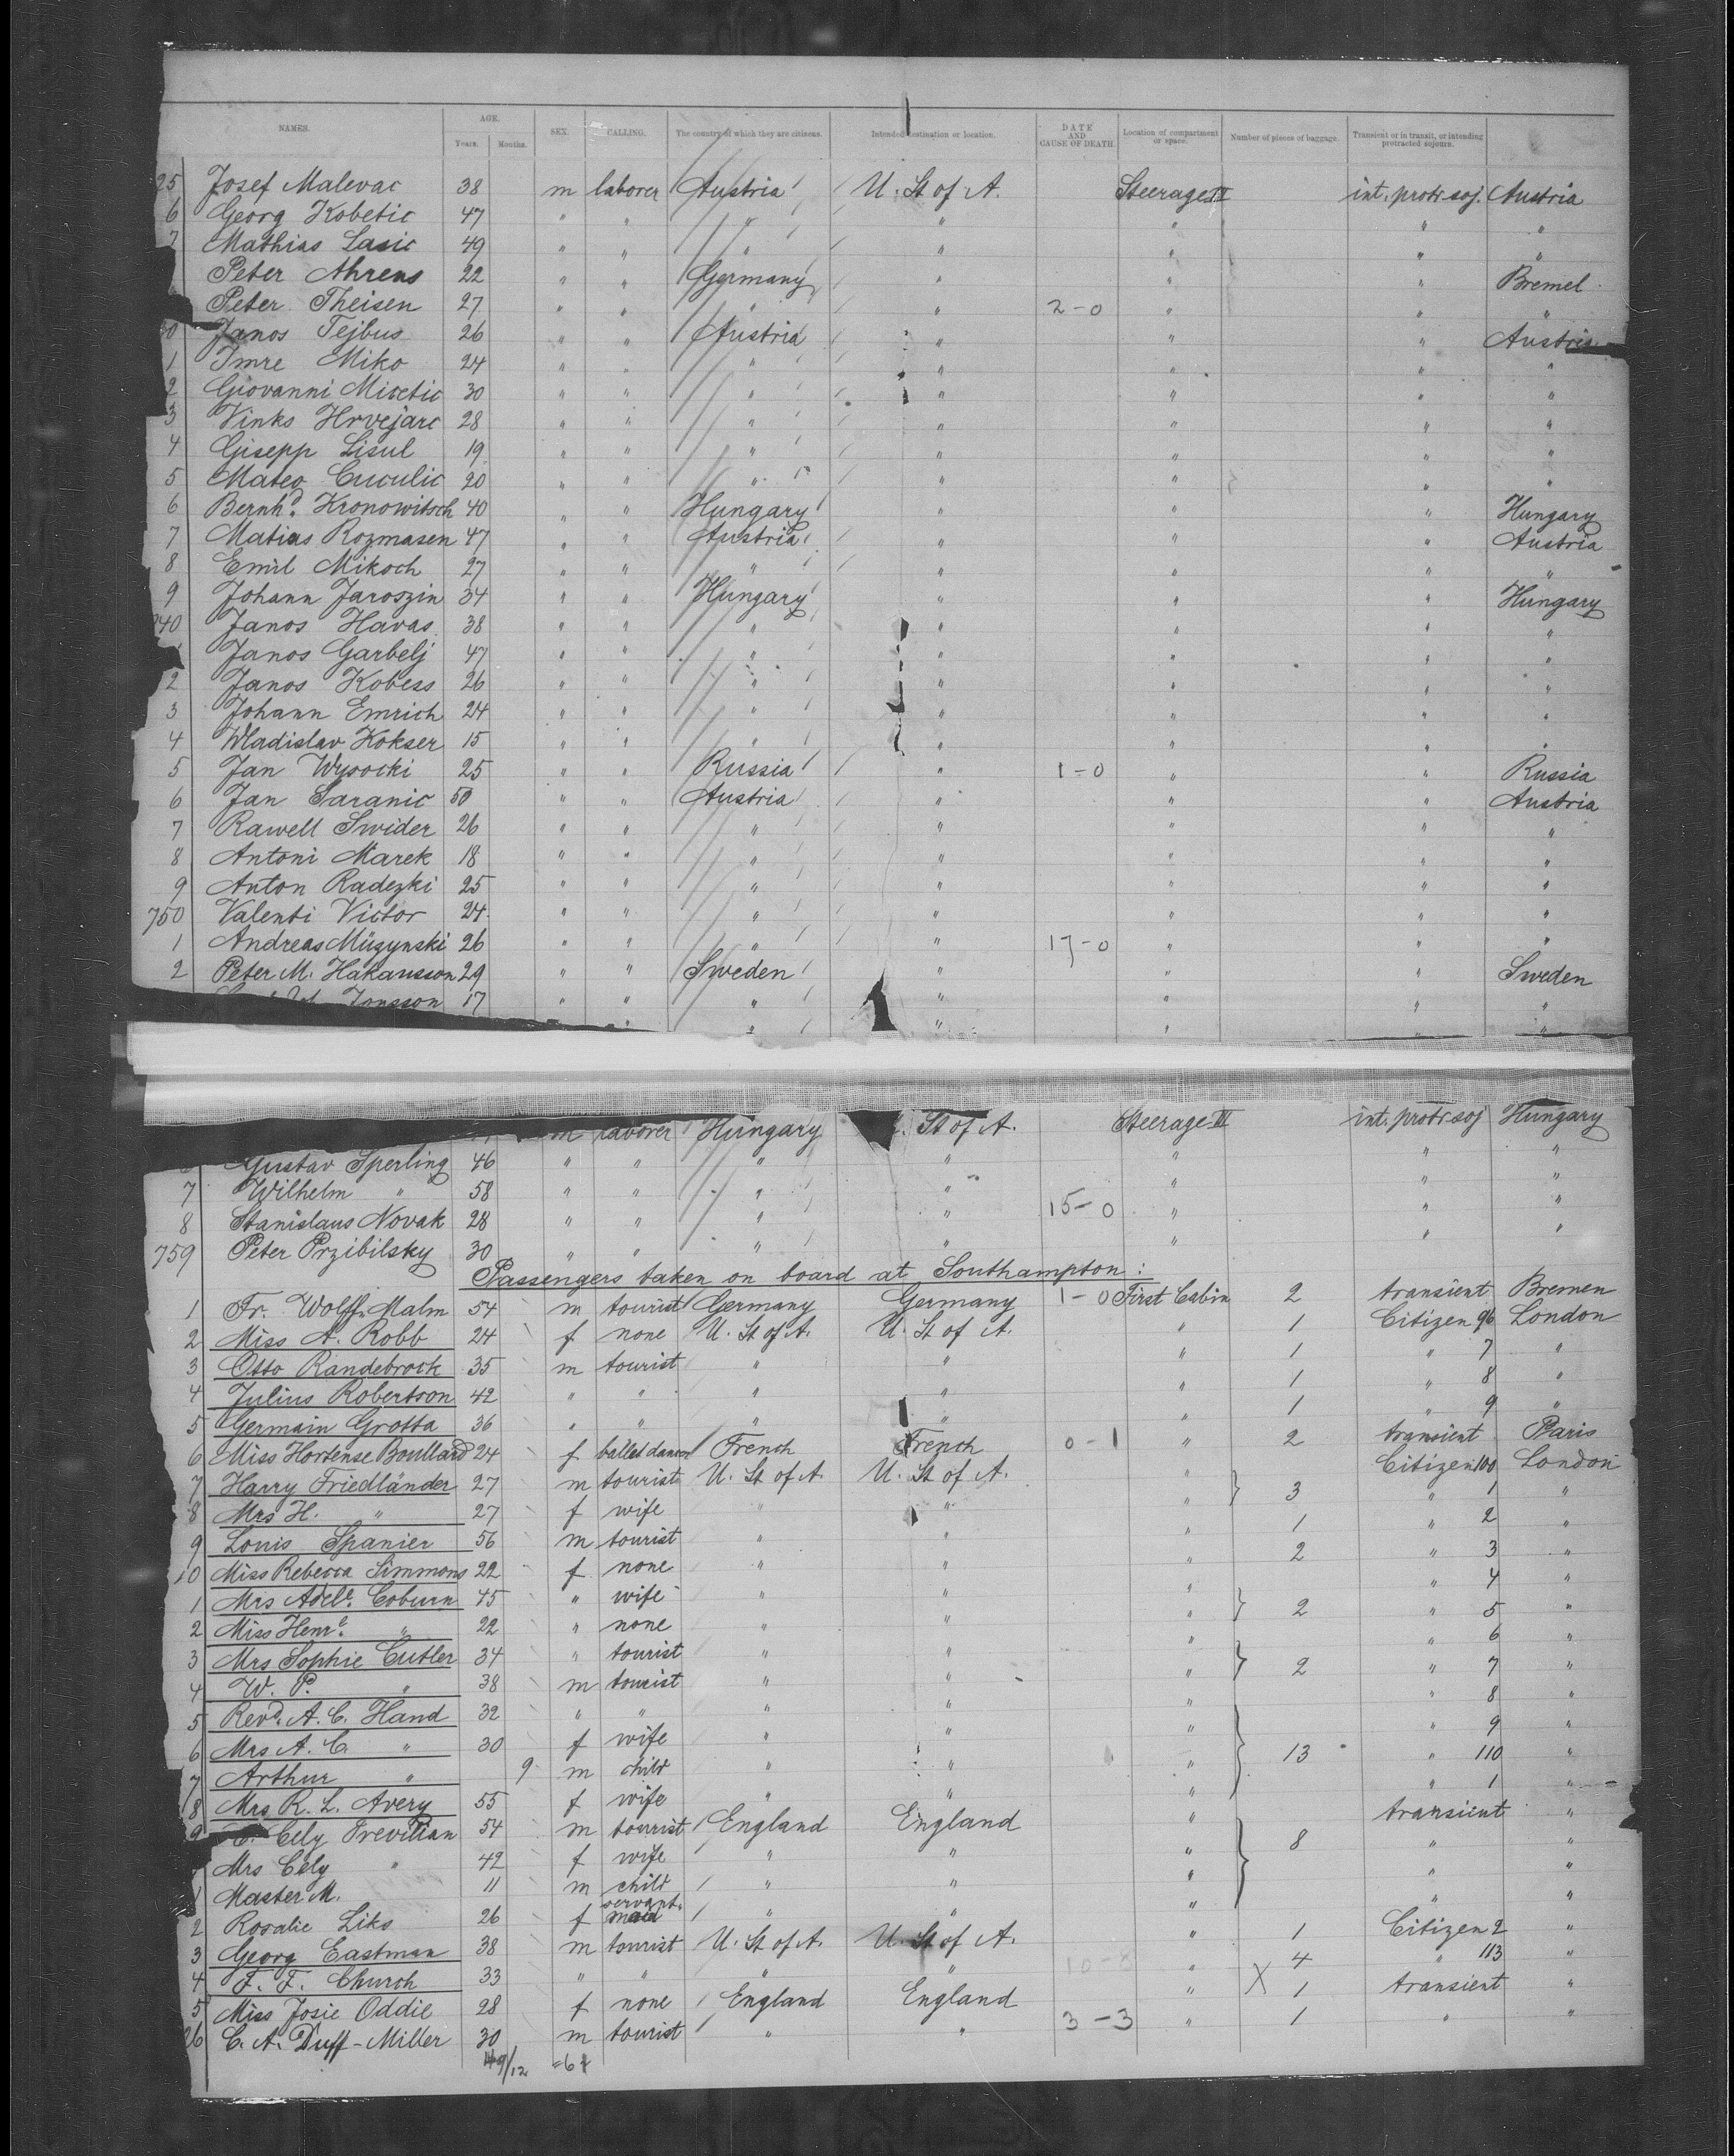 NAMES. AGE. Years. Months. SEX. CALLING. The country of which they are citizens. Intended destination or location. DATE AND CAUSE OF DEATH. Location of compartment or space. Number of pieces of baggage. Transient or in transit, or intending protracted sojourn.
25 Josef Malevac 38 m laborer Austria U. St of A. Steerage II int. protr. soj. Austria
6 Georg Kobetic 47 " " " " " " "
7 Mathias Lasic 49 " " " " " " "
Peter Ahrens 22 " " Germany " " " Bremel
Peter Theisen 27 " " " " 2-0 " " "
30 Janos Tejbus 26 " " Austria " " " Austria
1 Imre Miko 24 " " " " " " "
2 Giovanni Micetic 30 " " " " " " "
3 Vinks Hrvejarc 28 " " " " " " "
4 Gisepp Lisul 19 " " " " " " "
5 Mateo Cuculic 20 " " " " " " "
6 Bernhd. Kronowitsch 40 " " Hungary " " " Hungary
7 Matias Rozmasen 47 " " Austria " " " Austria
8 Emil Mikoch 27 " " " " " " "
9 Johann Jaroszin 34 " " Hungary " " " Hungary
740 Janos Havas 38 " " " " " " "
Janos Garbelj 47 " " " " " " "
2 Janos Kobess 26 " " " " " " "
3 Johann Emrich 24 " " " " " " "
4 Wladislav Kokser 15 " " " " " " "
5 Jan Wysocki 25 " " Russia " 1-0 " " Russia
6 Jan Saranic 50 " " Austria " " " Austria
7 Rawell Swider 26 " " " " " " "
8 Antoni Marek 18 " " " " " " "
9 Anton Radezki 25 " " " " " " "
750 Valenti Victor 24 " " " " " " "
1 Andreas Müzynski 26 " " " " 17-0 " " "
2 Peter M. Hakansson 29 " " Sweden " " " Sweden
Jonsson 17 " " " " " " "
" " " " " "
m laborer Hungary St of A. Steerage II int. protr. soj Hungary
Gustav Sperling 46 " " " " " " "
7 Wilhelm " 58 " " " " " " "
8 Stanislaus Novak 28 " " " " 15-0 " " "
759 Peter Przibilsky 30 " " " " " " "
Passengers taken on board at Southampton:
1 Fr. Wolff-Malm 54 m tourist Germany Germany 1-0 First Cabin 2 transient Bremen
2 Miss A. Robb 24 f none U. St of A. U. St of A. " 1 Citizen 96 London
3 Otto Randebrock 35 m tourist " " " 1 " 7 "
4 Julius Robertson 42 " " " " " 1 " 8 "
5 Germain Grotta 36 " " " " " 1 " 9 "
6 Miss Hortense Boullard 24 f ballet dancer French French 0-1 " 2 transient Paris
7 Harry Friedländer 27 m tourist U. St of A. U. St of A. " 3 Citizen 100 London
8 Mrs H. " 27 f wife " " " " 1 "
9 Louis Spanier 56 m tourist " " " 1 " 2 "
10 Miss Rebecca Simmons 22 f none " " " 2 " 3 "
1 Mrs Adele. Coburn 45 " wife " " " 2 " 4 "
2 Miss Henre. " 22 " none " " " " 5 "
3 Mrs Sophie Cutler 34 " tourist " " " 2 " 6 "
4 W. P. " 38 m tourist " " " " 7 "
5 Revd. A. C. Hand 32 " " " " " 13 " 8 "
6 Mrs A. C. " 30 f wife " " " " 9 "
7 Arthur " 9 m child " " " " 110 "
8 Mrs R. L. Avery 55 f wife " " " " 1 "
9 Cely Trevilian 54 m tourist England England " 8 transient "
Mrs Cely " 42 f wife " " " " "
1 Master M. 11 m child " " " " "
2 Rosalie Liks 26 f servant. maid " " " " "
3 Georg Eastman 38 m tourist U. St of A. U. St of A. " 1 Citizen 2 "
4 F. F. Church 33 " " " " 10-0 " 4 " 113 "
5 Miss Josie Oddie 28 f none England England " X 1 transient "
26 C. A. Duff-Miller 30 m tourist " " 3-3 " 1 " "
9/12